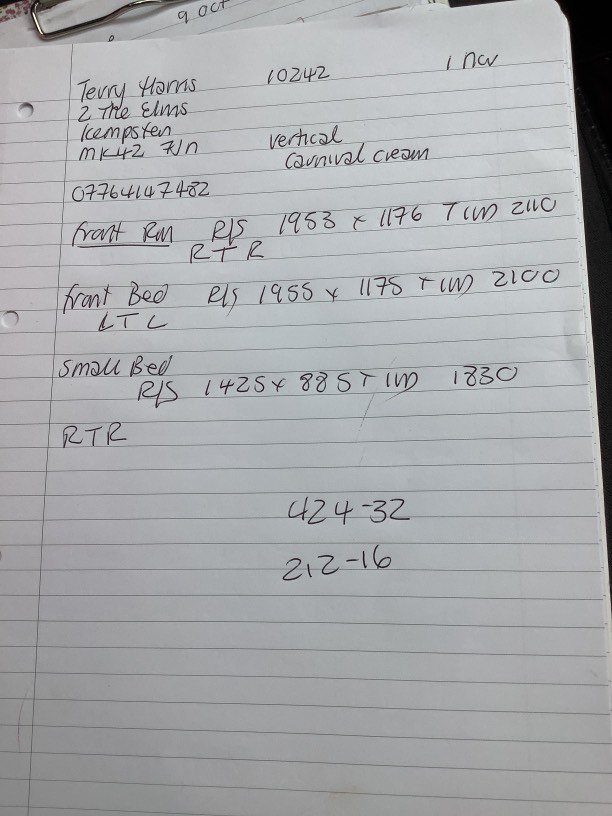 9 Oct
Terry Harris 10242 1 Nov
2 The Elms
Kempsten
MK42 7JN vertical
Carnival cream
07764147482
front Rm R/S 1953 x 1176 T (W) 2110
RTR
front Bed R/S 1955 x 1175 T (W) 2100
LTL
Small Bed
R/S 1425 x 885 T (W) 1830
RTR
424-32
212-16